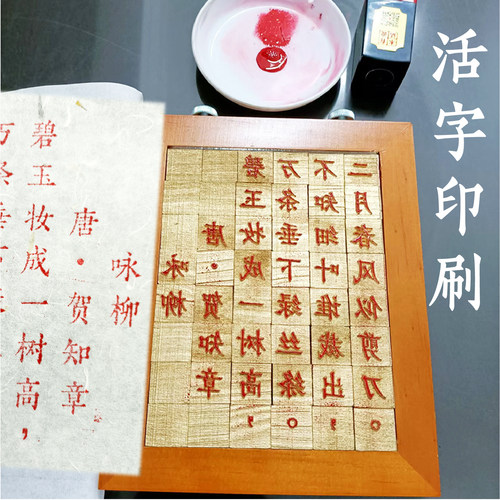 活字印刷
咏柳
唐·贺知章
碧玉妆成一树高，
万条垂下
咏柳
唐·贺知章
碧玉妆成一树高，
万条垂下绿丝绦。
不知细叶谁裁出，
二月春风似剪刀。